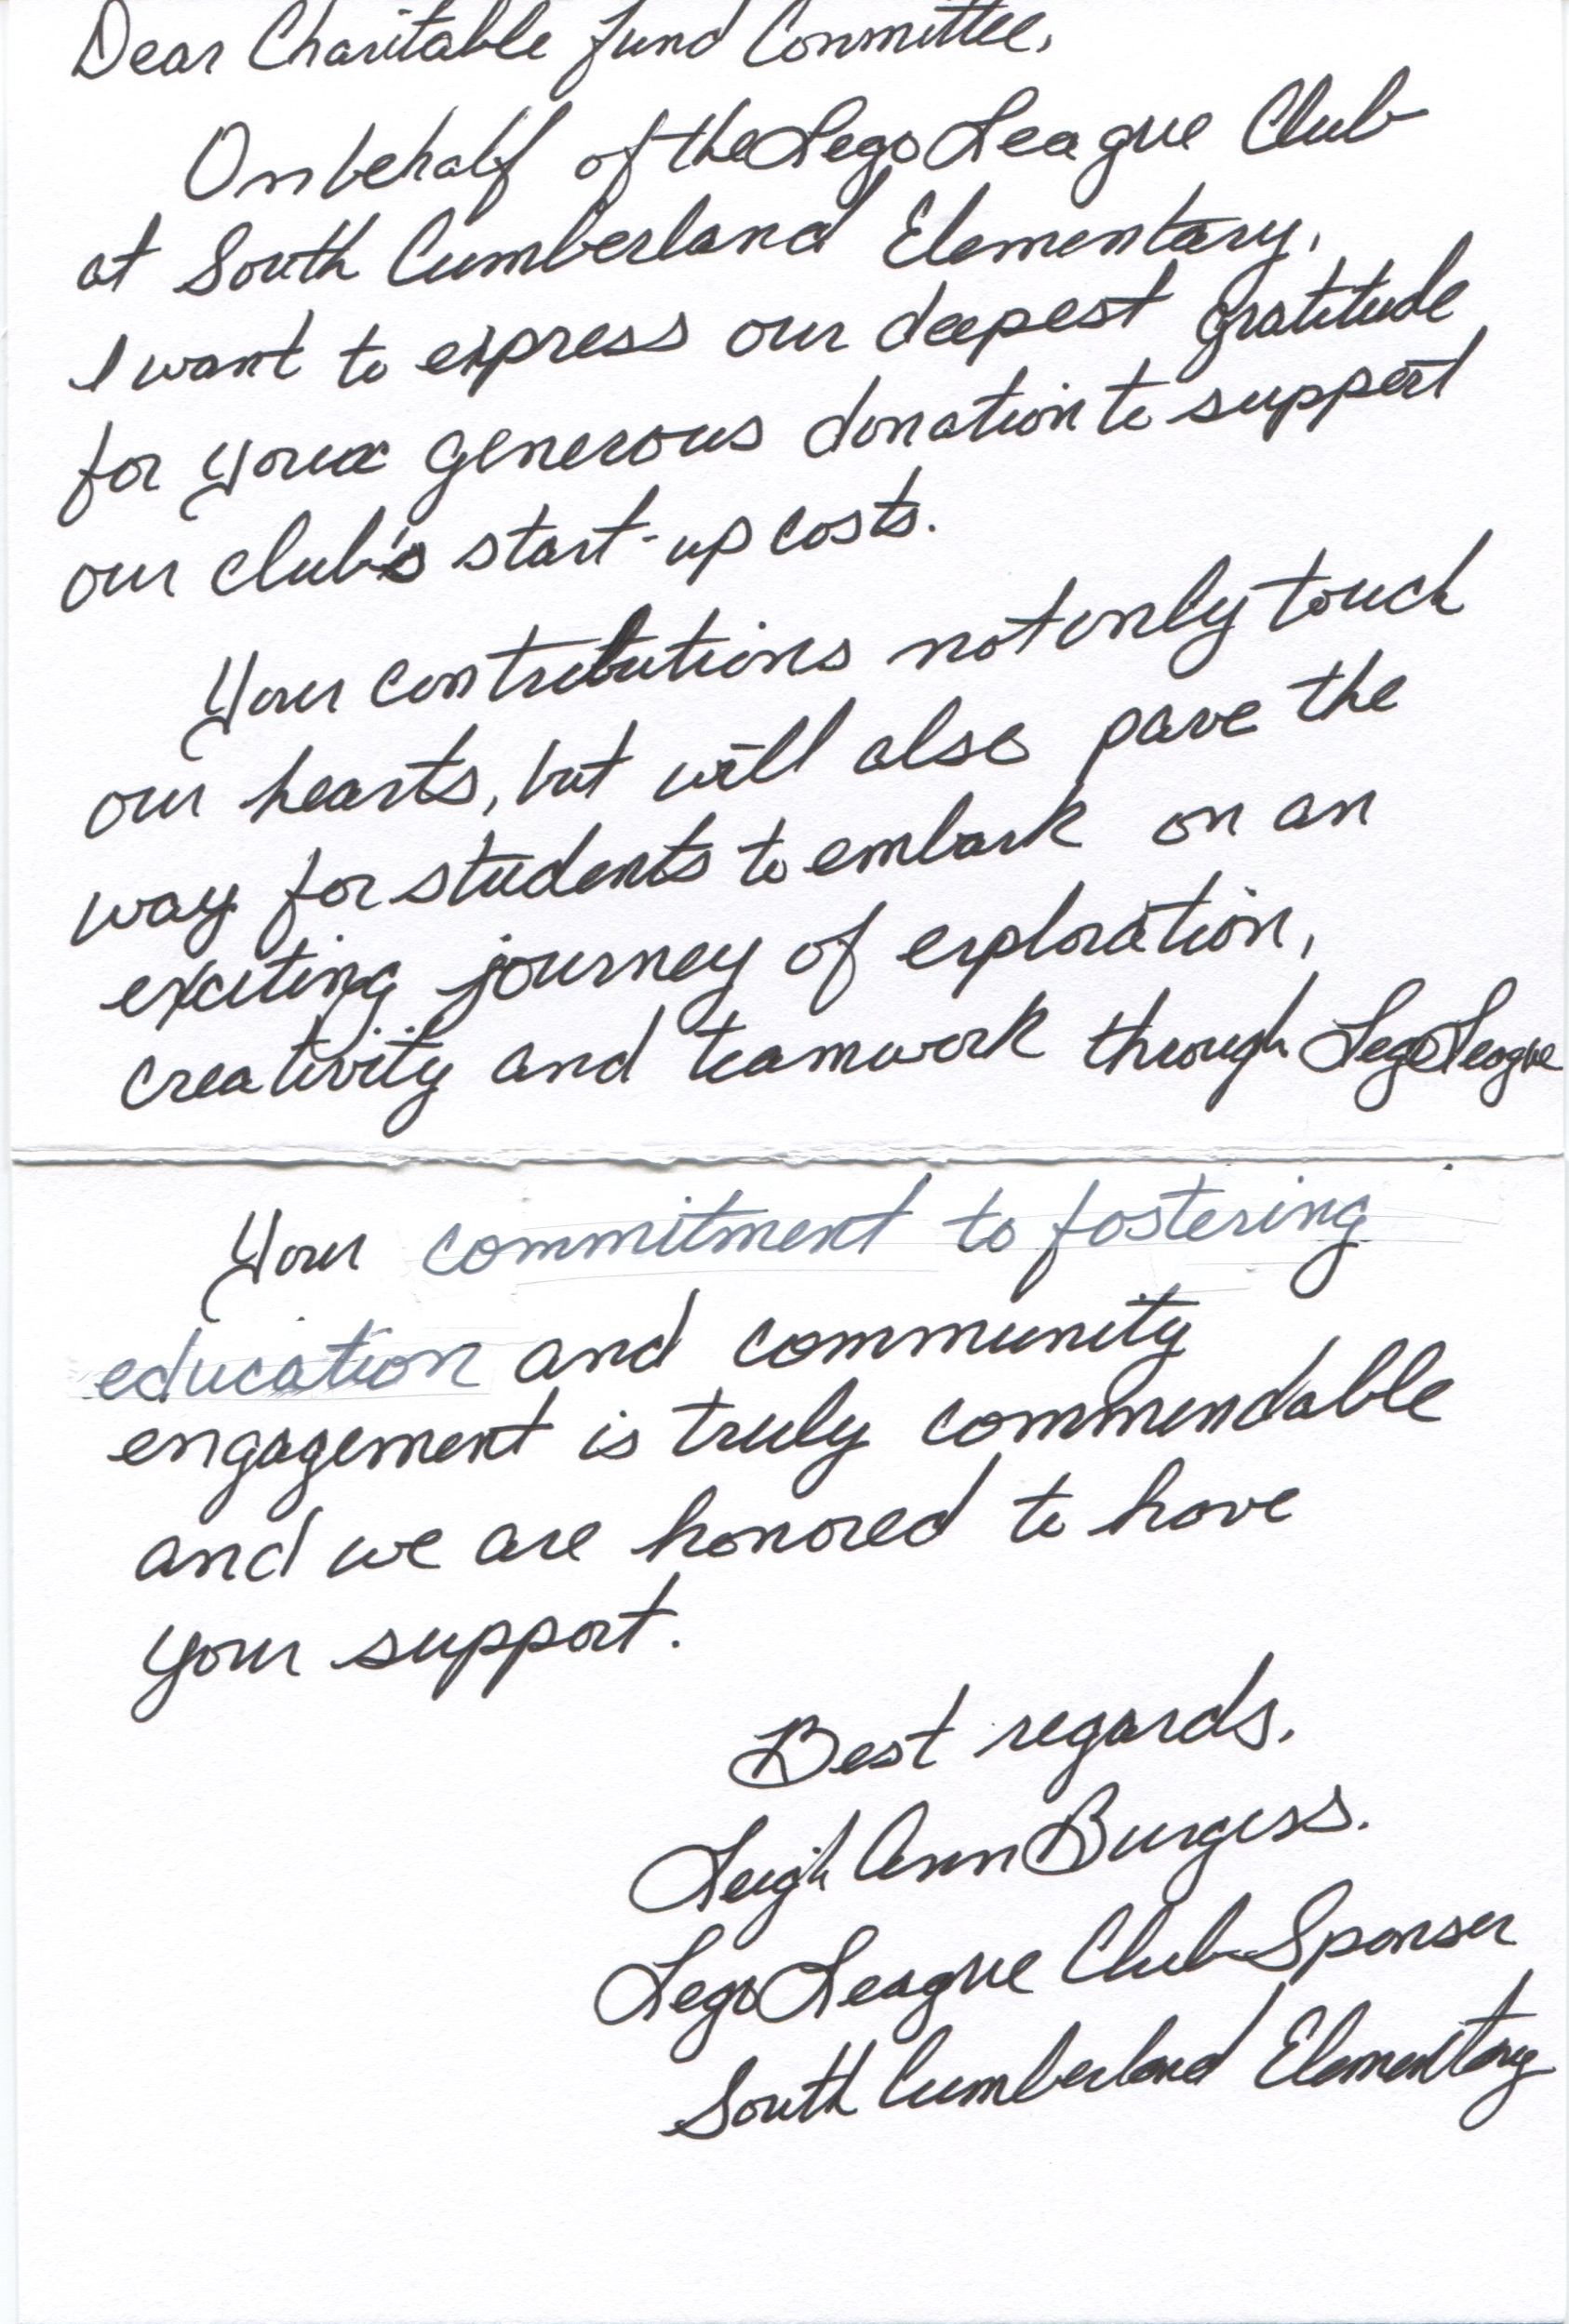 Dear Charitable Fund Committee,
On behalf of the Lego League Club
at South Cumberland Elementary,
I want to express our deepest gratitude
for your generous donation to support
our club's start-up costs.
Your contributions not only touch
our hearts, but will also pave the
way for students to embark on an
exciting journey of exploration,
creativity and teamwork through Lego League
Your commitment to fostering
education and community
engagement is truly commendable
and we are honored to have
your support.
Best regards,
Leigh Ann Burgess.
Lego League Club Sponser
South Cumberland Elementary